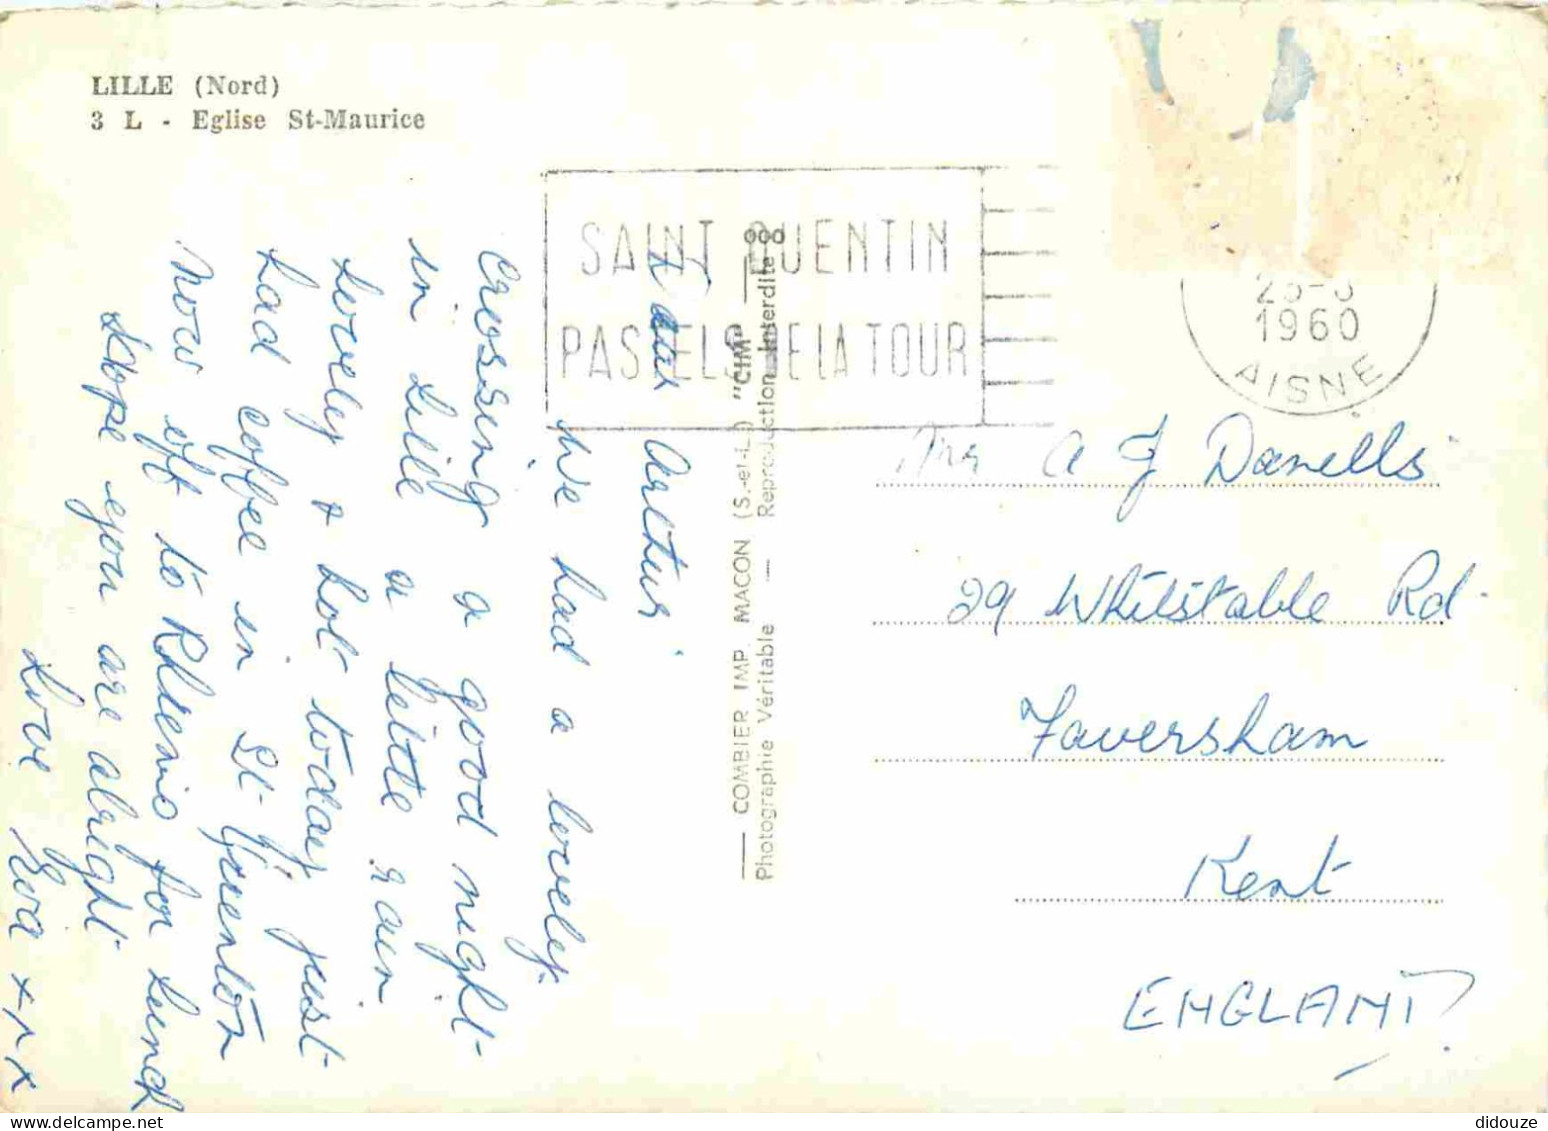 LILLE (Nord)
3 L - Eglise St-Maurice
SAINT QUENTIN
PASTELS DE LA TOUR
1960
AISNE
Dear Arthur
We had a lovely
Crossing a good night
in Lille a little rain
Lovely & hot today just
had coffee in St Quenton
Now off to Rhiems for lunch
Hope you are alright
Love x x x
COMBIER IMP. MACON (S.-et-L.) "CIM"
Photographie Véritable — Reproduction Interdite
000
Mr A J Danells
29 Whitstable Rd.
Faversham
Kent
ENGLAND
didouze